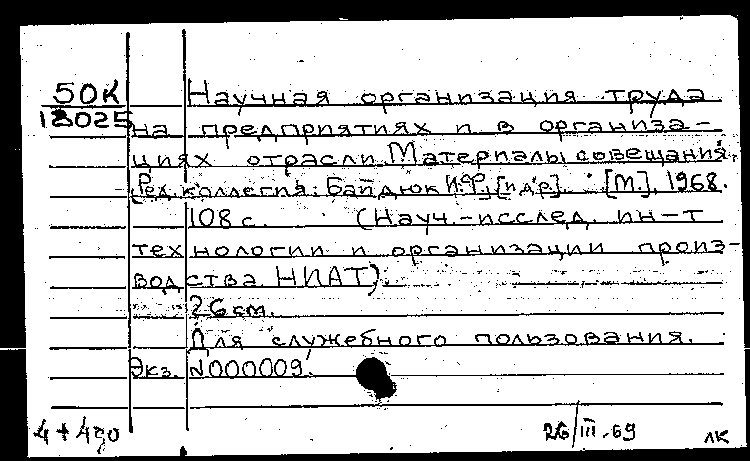 50К Научная организация труда
18025 на предприятиях и в организа-
циях отрасли. Материалы совещания.
[Ред. коллегия: Байдюк И.Ф., [и др]. [М.], 1968.
108 с. (Науч.-исслед. ин-т
технологии и организации произ-
водства НИАТ).
26 см.
Для служебного пользования.
Экз. N000009.
4+4до 26/III-69 лк